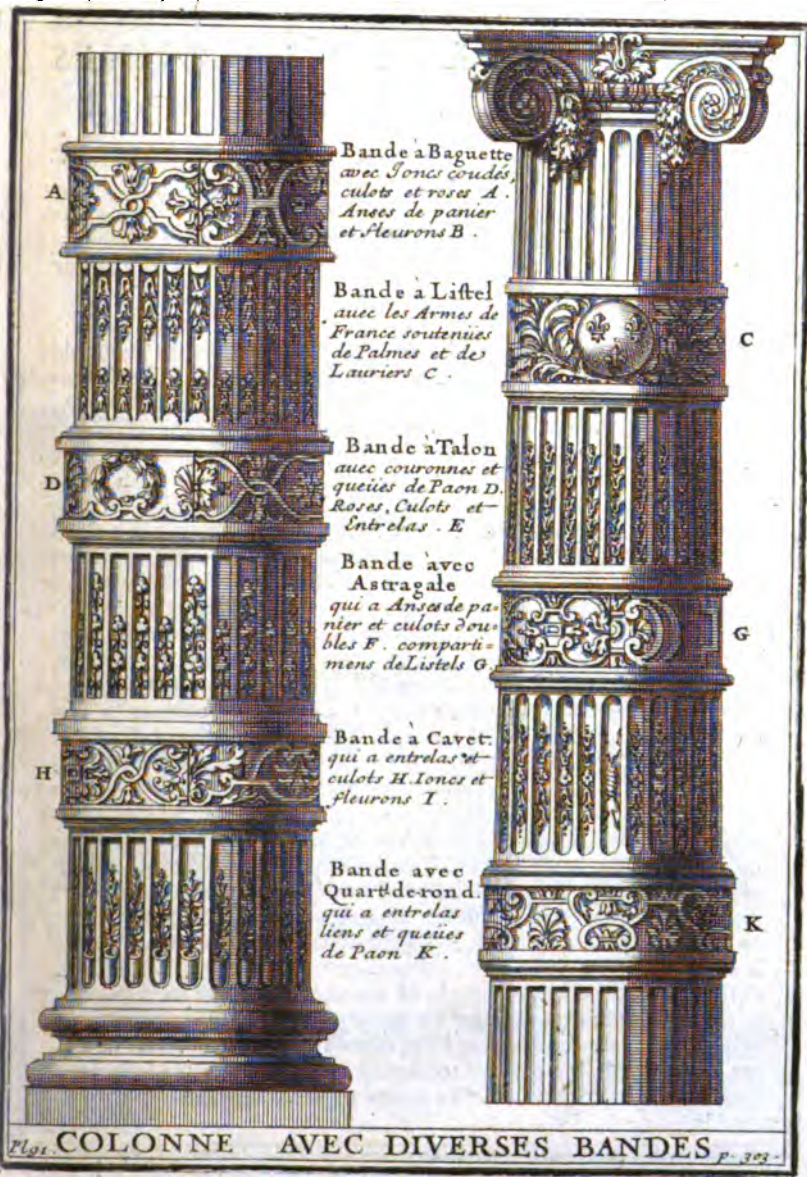 Bande à Baguette
avec Joncs coudés,
culots et roses A.
Anses de panier
et fleurons B.
A
Bande à Liſtel
avec les Armes de
France soutenües
de Palmes et de
Lauriers C.
C
Bande à Talon
avec couronnes et
queües de Paon D.
Roses, Culots et
Entrelas. E
D
Bande avec
Astragale
qui a Anses de pa-
nier et culots dou-
bles F. comparti-
mens de Listels G.
G
Bande à Cavet
qui a entrelas et
culots H. Ioncs et
fleurons I.
H
Bande avec
Quart-de-rond.
qui a entrelas
liens et queües
de Paon K.
K
Pl 91. COLONNE AVEC DIVERSES BANDES p. 303.